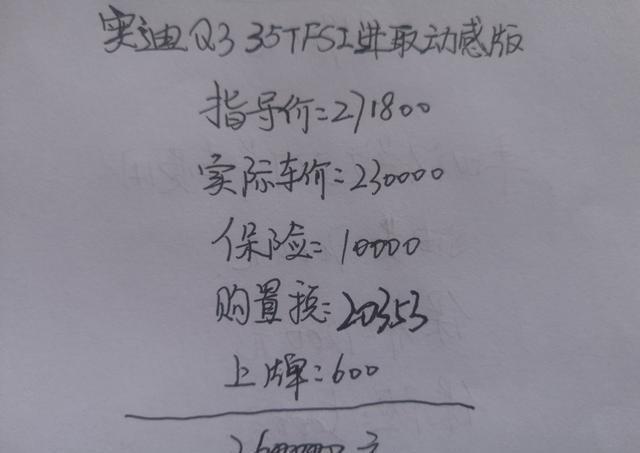 奥迪Q3 35TFSI进取动感版
指导价=271800
实际车价=230000
保险=10000
购置税=20353
上牌=600